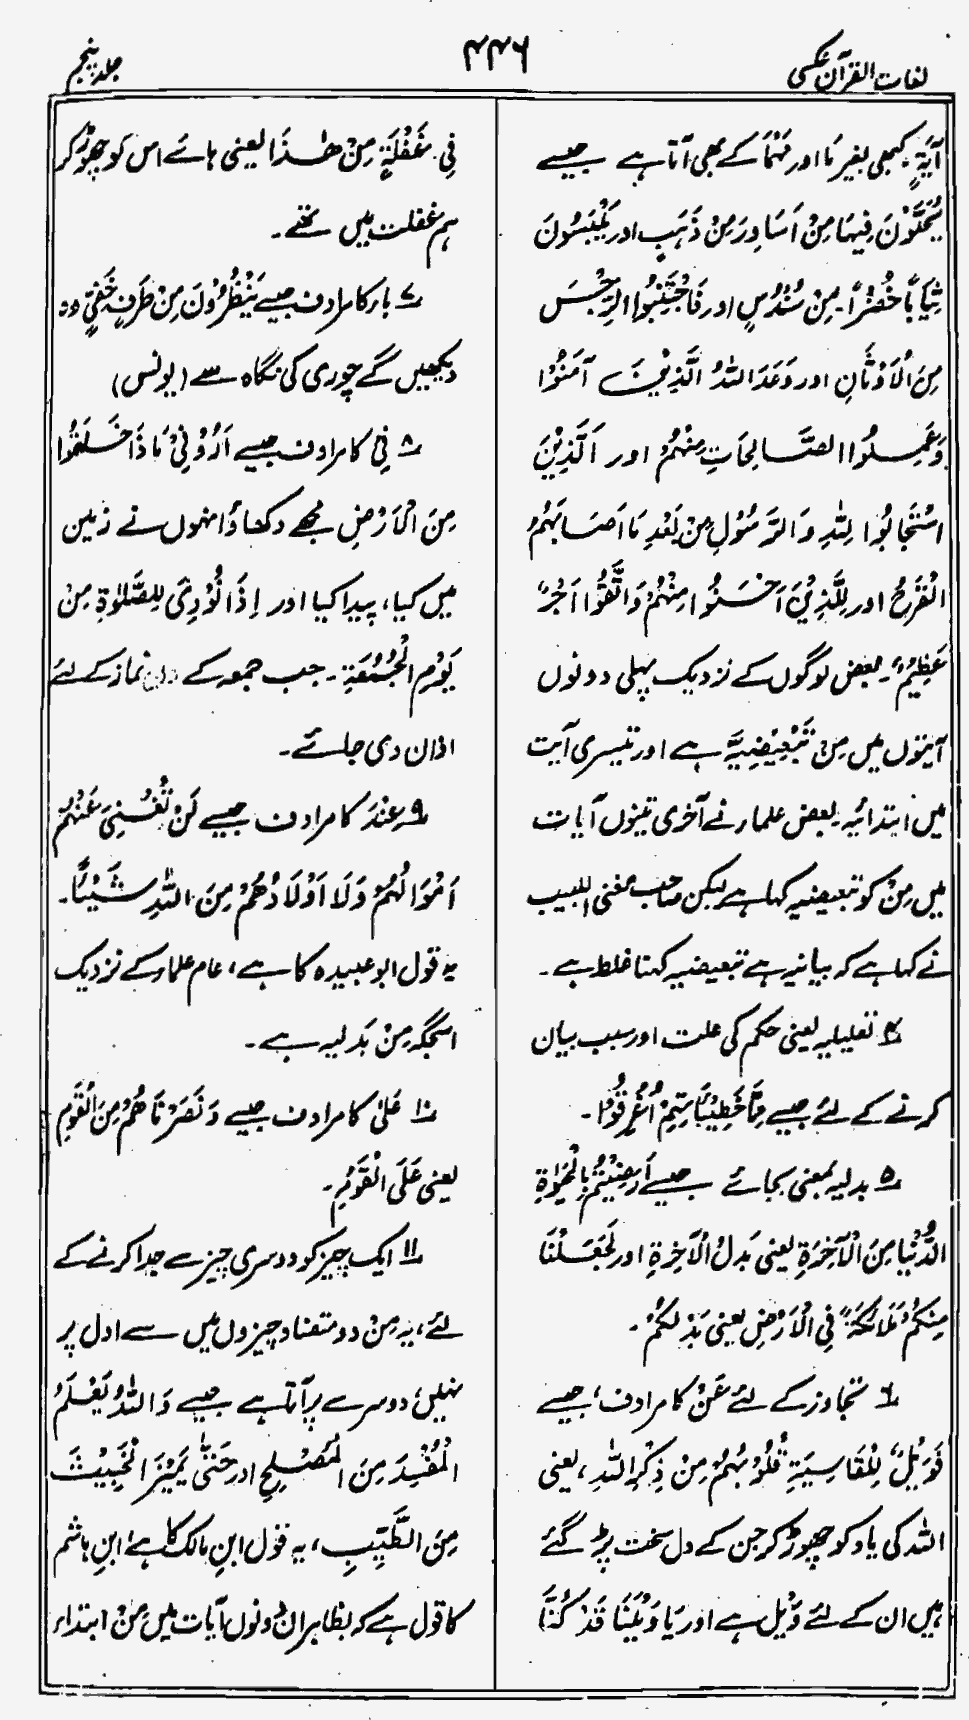 لغات القرآن عکسی
۴۴۶
جلد پنجم
آیَةٍ۔ کبھی بغیر مَا اور مَہْمَا کے بھی آتا ہے جیسے
یُحَلَّوْنَ فِیہَا مِنْ اَسَاوِرَ مِنْ ذَہَبٍ اور یَلْبَسُونَ
ثِیَابًا خُضْرًا۔ مِنْ سُنْدُسٍ اور فَاجْتَنِبُوا الرِّجْسَ
مِنَ الْاَوْثَانِ اور وَعَدَ اللّٰہُ الَّذِیْنَ آمَنُوْا
وَعَمِلُوا الصَّالِحَاتِ مِنْہُمْ اور اَلَّذِیْنَ
اسْتَجَابُوا لِلّٰہِ وَالرَّسُوْلِ مِنْ بَعْدِ مَا اَصَابَہُمُ
الْقَرْحُ اور لِلَّذِیْنَ اَحْسَنُوا مِنْہُمْ وَاتَّقُوا اَجْرٌ
عَظِیْمٌ۔ بعض لوگوں کے نزدیک پہلی دونوں
آیتوں میں مِنْ تَبْعِیْضِیَّہ ہے اور تیسری آیت
میں ابتدائیہ۔ بعض علماء نے آخری تینوں آیات
میں مِنْ کو تبعیضیہ کہا ہے لیکن صاحب مغنی اللبیب
نے کہا ہے کہ بیانیہ ہے تبعیضیہ کہنا غلط ہے۔
۴ تعلیلیہ یعنی حکم کی علت اور سبب بیان
کرنے کے لئے جیسے مِمَّا خَطِیْئَاتِہِمْ اُغْرِقُوْا۔
۵ بدلیہ بمعنی بجائے جیسے اَرَضِیْتُمْ بِالْحَیٰوةِ
الدُّنْیَا مِنَ الْآخِرَةِ یعنی بَدِلُ الْاٰخِرَةِ اور لَجَعَلْنَا
مِنْکُمْ مَلَائِکَةً فِی الْاَرْضِ یعنی بَدْلَکُمْ۔
۶ تجاوز کے لئے عَنْ کا مرادف، جیسے
فَوَیْلٌ لِلْقَاسِیَةِ قُلُوْبُہُمْ مِنْ ذِکْرِ اللّٰہِ، یعنی
اللہ کی یاد کو چھوڑ کر جن کے دل سخت پڑ گئے
ہیں ان کے لئے وَیْل ہے اور یَا وَیْلَنَا قَدْ کُنَّا
فِی غَفْلَةٍ مِنْ ھٰذَا یعنی ہائے اس کو چھوڑ کر
ہم غفلت میں تھے۔
۷ باء کا مرادف جیسے یَنْظُرُوْنَ مِنْ طَرْفٍ خَفِیٍّ وہ
دیکھیں گے چوری کی نگاہ سے (یونس)
۸ فِی کا مرادف جیسے اَرُوْنِیْ مَا ذَا خَلَقُوا
مِنَ الْاَرْضِ مجھے دکھاؤ انہوں نے زمین
میں کیا، پیدا کیا اور اِذَا نُوْدِیَ لِلصَّلٰوةِ مِنْ
یَوْمِ الْجُمُعَةِ۔ جب جمعہ کے دن نماز کے لئے
اذان دی جائے۔
۹ عِنْدَ کا مرادف جیسے لَنْ تُغْنِیَ عَنْہُمْ
اَمْوَالُہُمْ وَلَا اَوْلَادُھُمْ مِنَ اللّٰہِ شَیْئًا۔
یہ قول ابو عبیدہ کا ہے، عام علماء کے نزدیک
اسجگہ مِنْ بَدلیہ ہے۔
۱۰ عَلیٰ کا مرادف جیسے وَنَصَرْنَاھُمْ مِنَ الْقَوْمِ
یعنی عَلَی الْقَوْمِ۔
۱۱ ایک چیز کو دوسری چیز سے جدا کرنے کے
لئے، یہ مِنْ دو متضاد چیزوں میں سے اول پر
نہیں، دوسرے پر آتا ہے جیسے وَاللّٰہُ یَعْلَمُ
الْمُفْسِدَ مِنَ الْمُصْلِحِ اور حَتّٰی یَمِیْزَ الْخَبِیْثَ
مِنَ الطَّیِّبِ، یہ قول ابنِ مالک کا ہے ابنِ ہاشم
کا قول ہے کہ بظاہر ان دونوں آیات میں مِنْ ابتداء